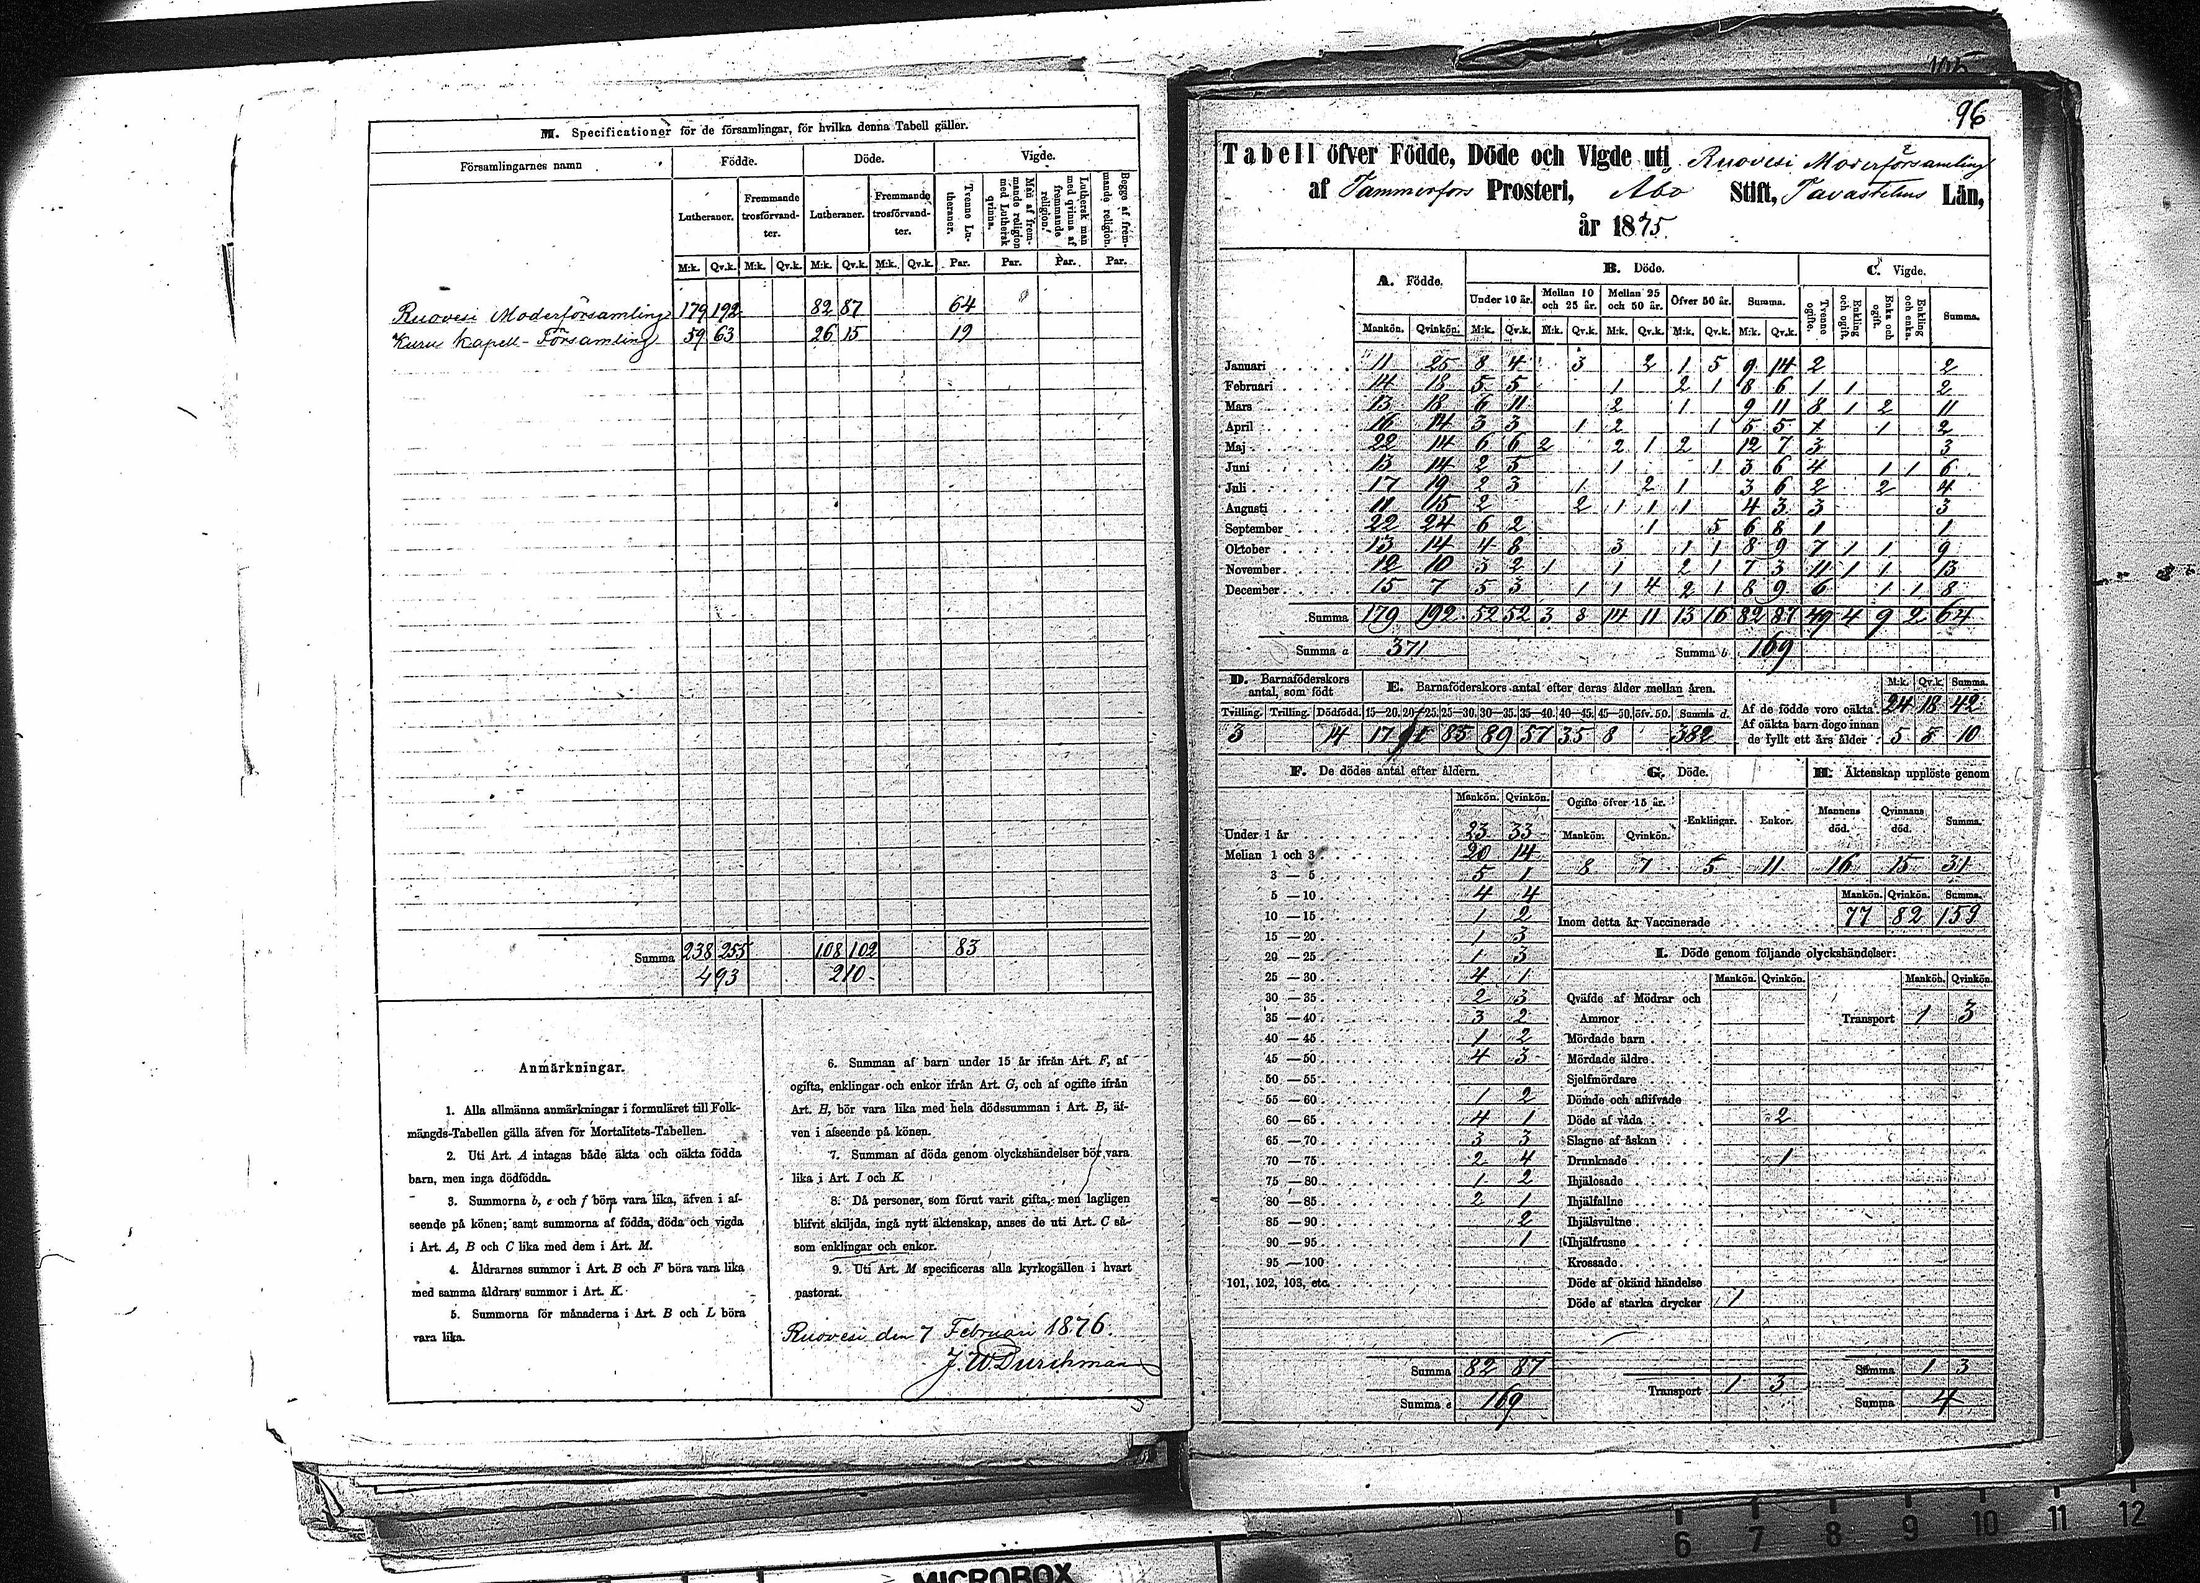 M. Specificationer för de församlingar, för hvilka denna Tabell gäller.
Församlingarnes namn Födde. Döde. Vigde.
Lutheraner. Fremmande trosförvandter. Lutheraner. Fremmande trosförvandter. Tvenne Lutheraner. Män af fremmande religion med Luthersk qvinna. Luthersk man med qvinna af fremmande religion. Begge af fremmande religion.
M:k. Qv.k. M:k. Qv.k. M:k. Qv.k. M:k. Qv.k. Par. Par. Par. Par.
Ruovesi Moderförsamling 179 192 82 87 64
Kuru Kapell-Församling 59 63 26 15 19
Summa 238 255 108 102 83
493 210
Anmärkningar.
1. Alla allmänna anmärkningar i formuläret till Folk-
mängds-Tabellen gälla äfven för Mortalitets-Tabellen.
2. Uti Art. A intagas både äkta och oäkta födda
barn, men inga dödfödda.
3. Summorna b, e och f böra vara lika, äfven i af-
seende på könen; samt summorna af födda, döda och vigda
i Art. A, B och C lika med dem i Art. M.
4. Åldrarnes summor i Art. B och F böra vara lika
med samma åldrars summor i Art. K.
5. Summorna för månaderna i Art. B och L böra
vara lika.
6. Summan af barn under 15 år ifrån Art. F, af
ogifta, enklingar och enkor ifrån Art. G, och af ogifte ifrån
Art. H, bör vara lika med hela dödssumman i Art. B, äf-
ven i afseende på könen.
7. Summan af döda genom olyckshändelser bör vara
lika i Art. I och K.
8. Då personer, som förut varit gifta, men lagligen
blifvit skiljda, ingå nytt äktenskap, anses de uti Art. C så-
som enklingar och enkor.
9. Uti Art. M specificeras alla kyrkogällen i hvart
pastorat.
Ruovesi den 7 Februari 1876.
J. W. Durchman
96
Tabell öfver Födde, Döde och Vigde uti Ruovesi Moderförsamling
af Tammerfors Prosteri, Åbo Stift, Tavastehus Län,
år 1875.
A. Födde. B. Döde. C. Vigde.
Under 10 år. Mellan 10 och 25 år. Mellan 25 och 50 år. Öfver 50 år. Summa. Tvenne ogifte. Enkling och ogift. Enka och ogift. Enkling och enka. Summa.
Mankön. Qvinkön. M:k. Qv.k. M:k. Qv.k. M:k. Qv.k. M:k. Qv.k. M:k. Qv.k.
Januari 11 25 8 4 3 2 1 5 9 14 2 2
Februari 14 18 5 5 1 2 1 8 6 1 1 2
Mars 13 18 6 11 2 1 9 11 8 1 2 11
April 16 14 3 3 1 2 1 5 5 1 1 2
Maj 22 14 6 6 2 2 1 2 12 7 3 3
Juni 13 14 2 5 1 1 3 6 4 1 1 6
Juli 17 19 2 3 1 2 1 3 6 2 2 4
Augusti 11 15 2 2 1 1 1 4 3 3 3
September 22 24 6 2 1 5 6 8 1 1
Oktober 13 14 4 8 3 1 1 8 9 7 1 1 9
November 12 10 3 2 1 1 2 1 7 3 11 1 1 13
December 15 7 5 3 1 1 4 2 1 8 9 6 1 1 8
Summa 179 192 52 52 3 8 14 11 13 16 82 87 49 4 9 2 64
Summa a 371 Summa b 169
D. Barnaföderskors antal, som födt E. Barnaföderskors antal efter deras ålder mellan åren. M:k. Qv.k. Summa.
Tvilling. Trilling. Dödfödd. 15—20. 20—25. 25—30. 30—35. 35—40. 40—45. 45—50. öfv. 50. Summa d.
3 14 17 85 89 57 35 8 382
Af de födde voro oäkta 24 18 42
Af oäkta barn dogo innan
de fyllt ett års ålder 5 5 10
F. De dödes antal efter åldern.
Mankön. Qvinkön.
Under 1 år 23 33
Mellan 1 och 3 20 14
3 — 5 5 1
5 —10 4 4
10 —15 1 2
15 —20 1 3
20 —25 1 3
25 —30 4 1
30 —35 2 3
35 —40 3 2
40 —45 1 2
45 —50 4 3
50 —55
55 —60 1 2
60 —65 4 1
65 —70 3 3
70 —75 2 4
75 —80 1 2
80 —85 2 1
85 —90 2
90 —95 1
95 —100
101, 102, 103, etc.
Summa 82 87
Summa e 169
G. Döde.
Ogifte öfver 15 år. Enklingar. Enkor.
Mankön. Qvinkön.
8 7 5 11
H. Äktenskap upplöste genom
Mannens död. Qvinnans död. Summa.
16 15 31
Mankön. Qvinkön. Summa.
Inom detta år Vaccinerade 77 82 159
I. Döde genom följande olyckshändelser:
Mankön. Qvinkön. Mankön. Qvinkön.
Qväfde af Mödrar och
Ammor Transport 1 3
Mördade barn
Mördade äldre
Sjelfmördare
Dömde och aflifvade
Döde af våda 2
Slagne af åskan
Drunknade 1
Ihjälosade
Ihjälfallne
Ihjälsvultne
Ihjälfrusne
Krossade
Döde af okänd händelse
Döde af starka drycker 1
Summa 1 3
Transport 1 3
Summa 4
6 7 8 9 10 11 12
MICROBOX